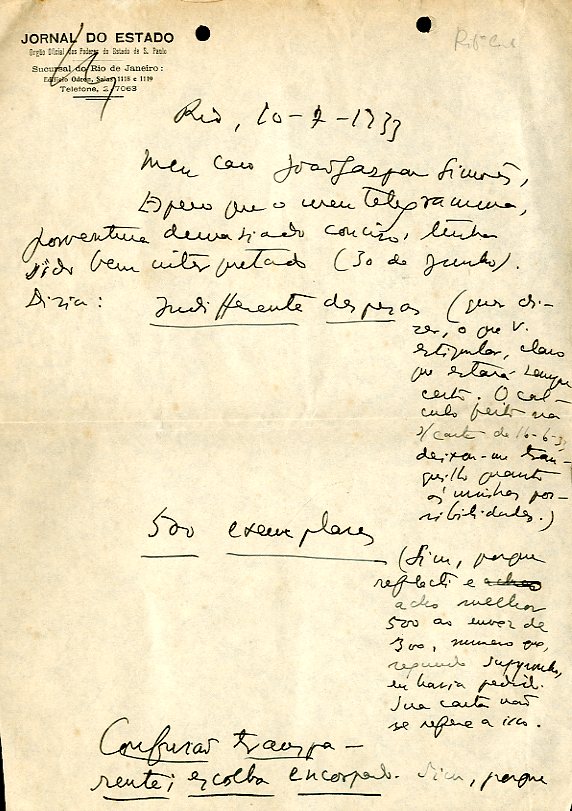 JORNAL DO ESTADO
Orgão Oficial dos Poderes do Estado de S. Paulo
Sucursal do Rio de Janeiro:
Edifício Odeon, Salas 1118 e 1119
Telefone, 2-7063
Rio, 10-7-1933
Meu caro João Gaspar Simões,
Espero que o meu telegramma,
porventura demasiado conciso, tenha
sido bem interpretado (30 de Junho).
Dizia: Indifferente despesas (quer di-
zer, o que V.
estipular, claro
que estará sempre
certo. O cal-
culo feito na
s/ carta de 16-6-33
deixou-me tran-
quillo quanto
ás minhas pos-
sibilidades.)
500 exemplares
(Sim, porque
reflecti e achei
acho melhor
500 ao envez de
300, numero que,
segundo supponho,
eu havia pedido.
Sua carta não
se refere a isso.
Confusão transpa-
rente; escolha encorpado. Sim, porque